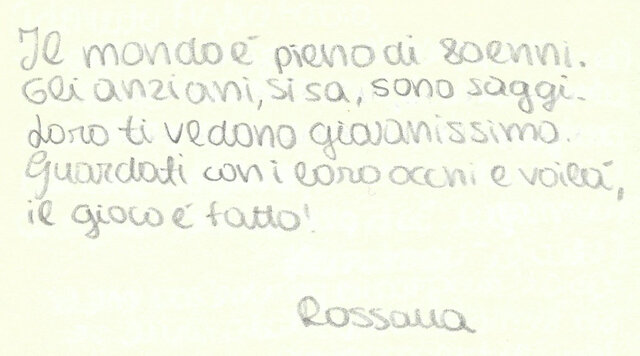 Il mondo é pieno di 80enni.
Gli anziani, si sa, sono saggi.
Loro ti vedono giovanissimo.
Guardati con i loro occhi e voilá,
il gioco é fatto!
Rossana